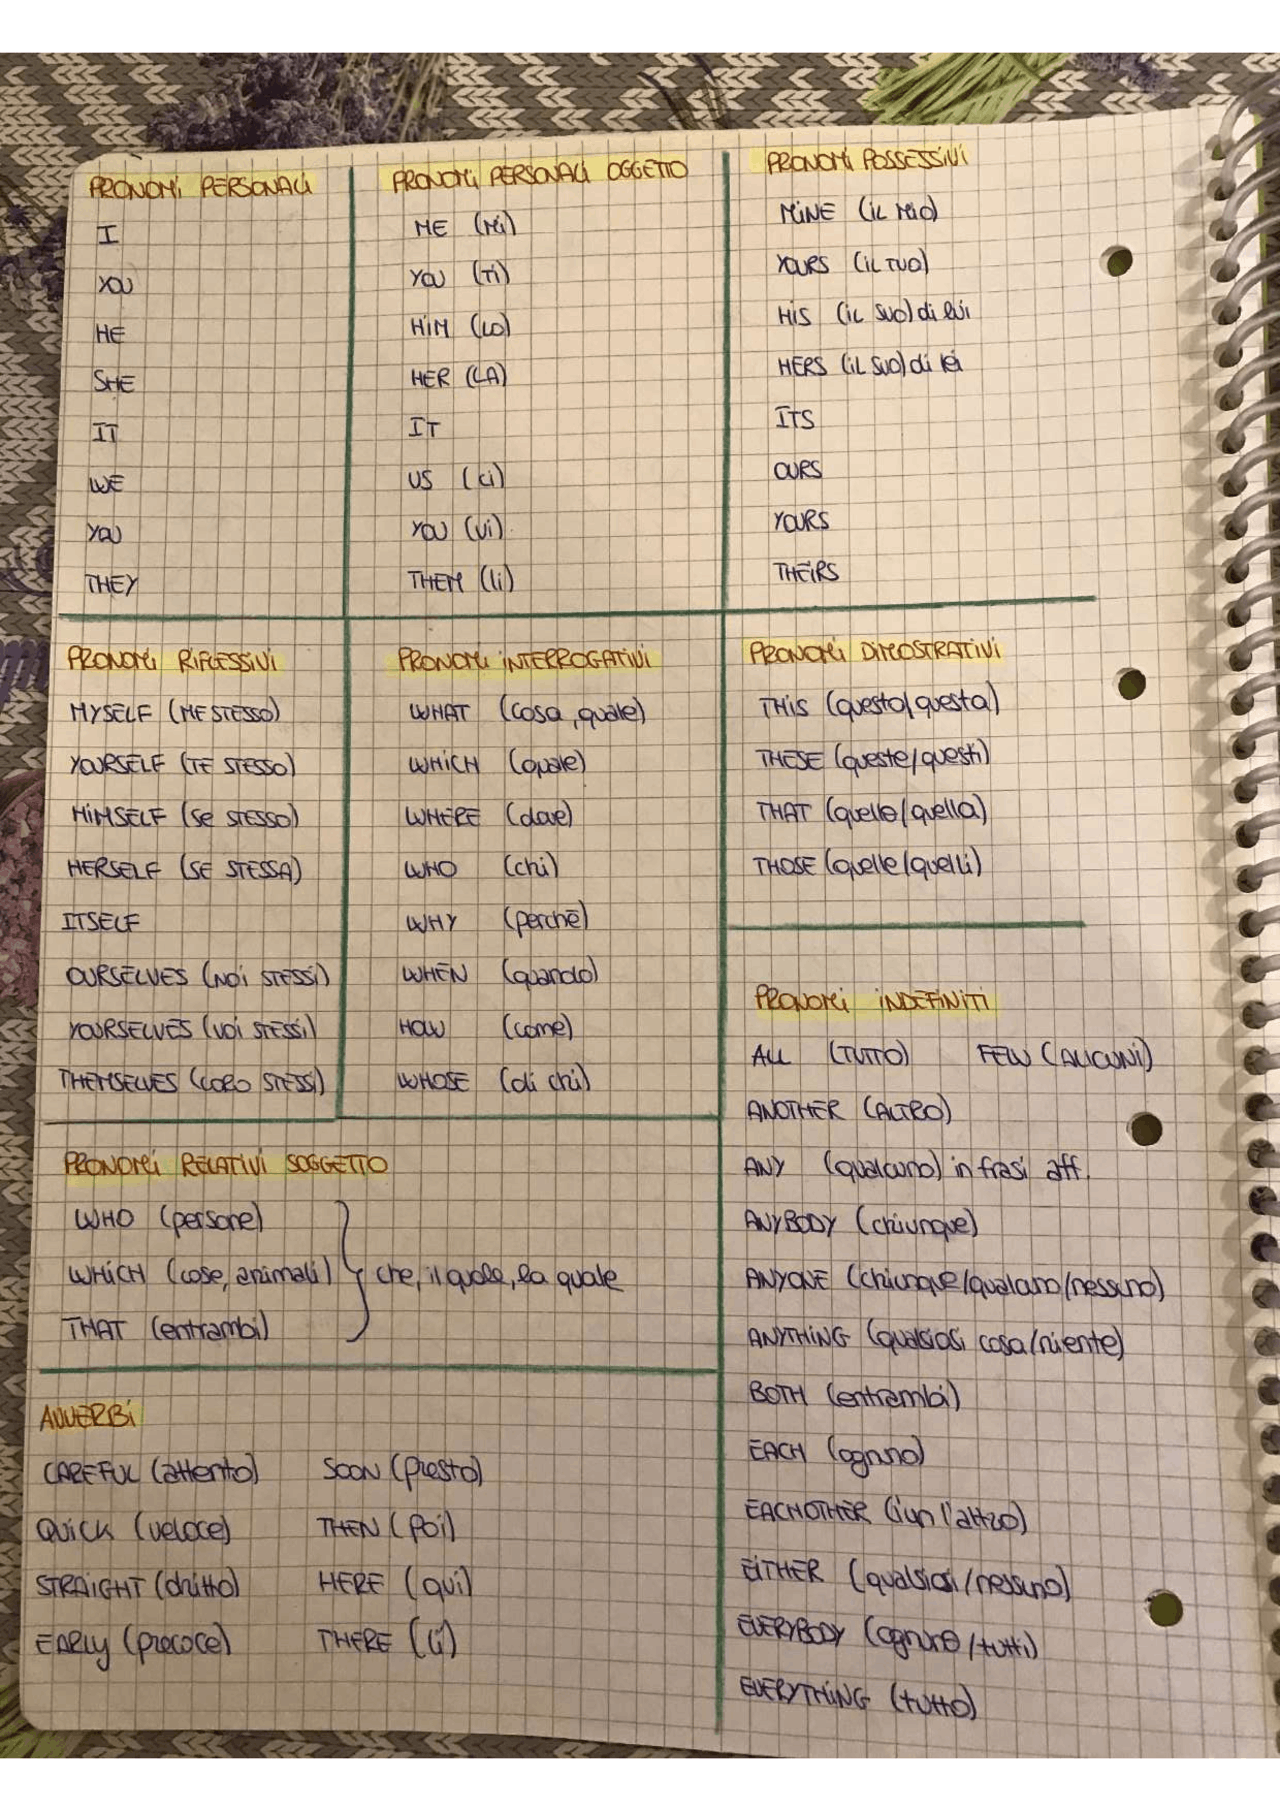 PRONOMI PERSONALI
I
YOU
HE
SHE
IT
WE
YOU
THEY
PRONOMI PERSONALI OGGETTO
ME (Mi)
YOU (Ti)
HIM (LO)
HER (LA)
IT
US (ci)
YOU (Vi)
THEM (li)
PRONOMI POSSESSIVI
MINE (iL MIO)
YOURS (iL TUO)
HIS (iL SUO) di lui
HERS (iL SUO) di lei
ITS
OURS
YOURS
THEIRS
PRONOMI RIFLESSIVI
MYSELF (ME STESSO)
YOURSELF (TE STESSO)
HIMSELF (SE STESSO)
HERSELF (SE STESSA)
ITSELF
OURSELVES (NOI STESSI)
YOURSELVES (VOI STESSI)
THEMSELVES (LORO STESSI)
PRONOMI INTERROGATIVI
WHAT (cosa, quale)
WHICH (quale)
WHERE (dove)
WHO (chi)
WHY (perchè)
WHEN (quando)
HOW (come)
WHOSE (di chi)
PRONOMI DIMOSTRATIVI
THIS (questo/questa)
THESE (queste/questi)
THAT (quello/quella)
THOSE (quelle/quelli)
PRONOMI INDEFINITI
ALL (TUTTO) FEW (ALCUNI)
ANOTHER (ALTRO)
ANY (qualcuno) in frasi aff.
ANYBODY (chiunque)
ANYONE (chiunque/qualcuno/nessuno)
ANYTHING (qualsiasi cosa/niente)
BOTH (entrambi)
EACH (ognuno)
EACHOTHER (l'un l'altro)
EITHER (qualsiasi/nessuno)
EVERYBODY (ognuno/tutti)
EVERYTHING (tutto)
PRONOMI RELATIVI SOGGETTO
WHO (persone)
WHICH (cose, animali) } che, il quale, la quale
THAT (entrambi)
AVVERBI
CAREFUL (attento) SOON (presto)
QUICK (veloce) THEN (poi)
STRAIGHT (dritto) HERE (qui)
EARLY (precoce) THERE (lì)